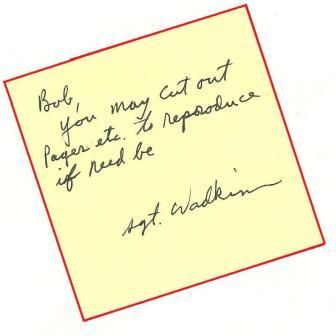 Bob,
you may cut out
pages etc. to reporoduce
if need be
sgt. Wadkins